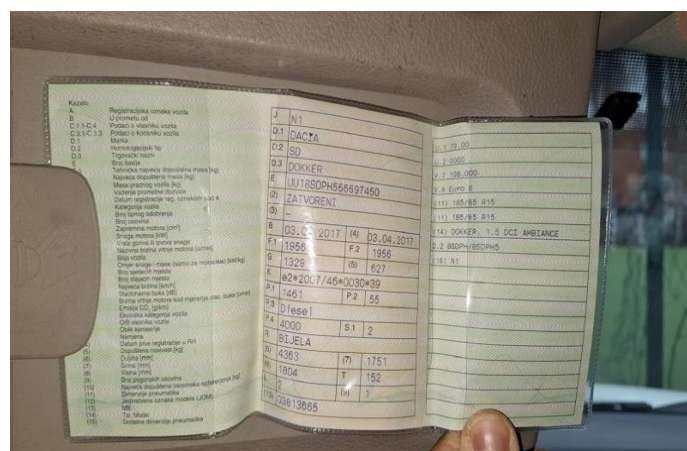 Kazalo:
A Registracijska oznaka vozila
B U prometu od
C.1.1-C.4 Podaci o vlasniku vozila
C.3.1-C.3.3 Podaci o korisniku vozila
D.1 Marka
D.2 Homologacijski tip
D.3 Trgovački naziv
E Broj šasije
Tehnička najveća dopuštena masa [kg]
Najveća dopuštena masa [kg]
Masa praznog vozila [kg]
Važenje prometne dozvole
Datum registracije reg. oznakom pod A
Kategorija vozila
Broj tipnog odobrenja
Broj osovina
Zapremina motora [cm³]
Snaga motora [kW]
Vrsta goriva ili izvora snage
Nazivna brzina vrtnje motora [o/min]
Boja vozila
Omjer snage i mase (samo za motocikle) [kW/kg]
Broj sjedećih mjesta
Broj stajaćih mjesta
Najveća brzina [km/h]
Stacionarna buka [dB]
Brzina vrtnje motora kod mjerenja stac. buke [o/min]
Emisija CO₂ [g/km]
Ekološka kategorija vozila
OIB vlasnika vozila
Oblik karoserije
Namjena
(4) Datum prve registracije u RH
(5) Dopuštena nosivost [kg]
(6) Duljina [mm]
(7) Širina [mm]
(8) Visina [mm]
(9) Broj pogonskih osovina
(10) Najveće dopušteno osovinsko opterećenje [kg]
(11) Dimenzije pneumatika
(12) Jedinstvena oznaka modela (JOM)
(13) MB
(14) Tip, Model
(15) Dodatne dimenzije pneumatika
J N1
D.1 DACIA
D.2 SD
D.3 DOKKER
E UU18SDPH556697450
(2) ZATVORENI
(3) –
B 03.04.2017 (4) 03.04.2017
F.1 1956 F.2 1956
G 1329 (5) 627
K e2*2007/46*0030*39
P.1 1461 P.2 55
P.3 Diesel
P.4 4000 S.1 2
R BIJELA
(6) 4363 (7) 1751
(8) 1804 T 152
L 2 (9) 1
(13) 03813665
U.1 79,00
U.2 3000
V.7 108,000
V.9 Euro 6
(11) 185/65 R15
(11) 185/65 R15
(14) DOKKER, 1.5 DCI AMBIANCE
D.2 8SDPH/8SDPH5
(16) N1